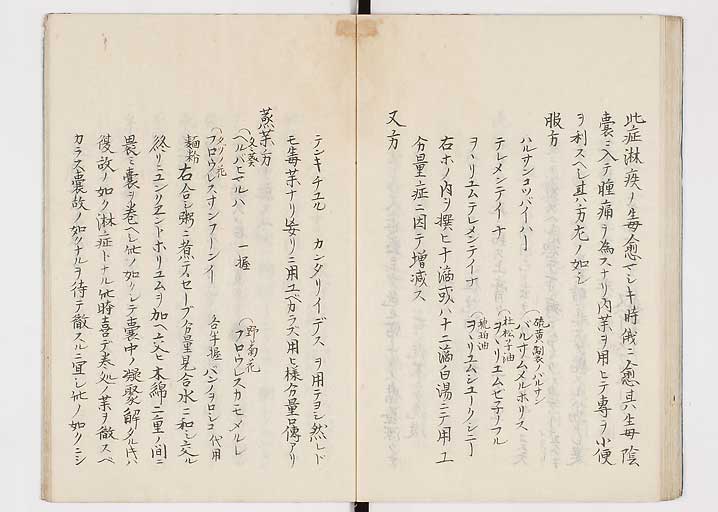 此症淋疾ノ生毎愈ヘシキ時俄ニ愈其生毎陰
囊ニ入テ腫痛ヲ為スナリ内薬ヲ用ヒテ専ラ小便
ヲ利スヘシ其方左ノ如シ
服方
ハルサンコツパイハー
硫黄製ノバルサン
バルサムスルホリス
テレメンテイナ
杜松子油
ヲヽリユムセ子フル
ヲヽリユムテレメンテイナ
琥珀油
ヲヽリユムシユークシニー
右ホノ内ヲ撰ヒ十滴或ハ十二滴白湯ニテ用ユ
分量症ニ因テ増減ス
又方
テンキチユル カンダリイデス ヲ用テヨシ然レド
モ毎薬ナリ妄リニ用ユベカラズ用ヒ様分量口傳アリ
蒸薬方
冬葵
ヘルバヒヤルハ 一握
野菊花
フロウレスカモメルレ
フロウレスサンフーシイ 各半握
パンヲロシコ代用
麺粉
右合シ粥ニ煮テセーブノ分量見合水ニ和シ交ル
終リニユンリエントホリユムヲ加ヘ交セ木綿二重ノ間ニ
畏ミ囊ヲ巻ヘシ此ノ如クシテ囊中ノ凝聚解クル片ハ
復故ノ如ク淋症トナル此時喜テ巻処ノ薬ヲ徹スベ
カラス囊故ノ如クナルヲ待テ徹スルニ宜シ此ノ如クニシ